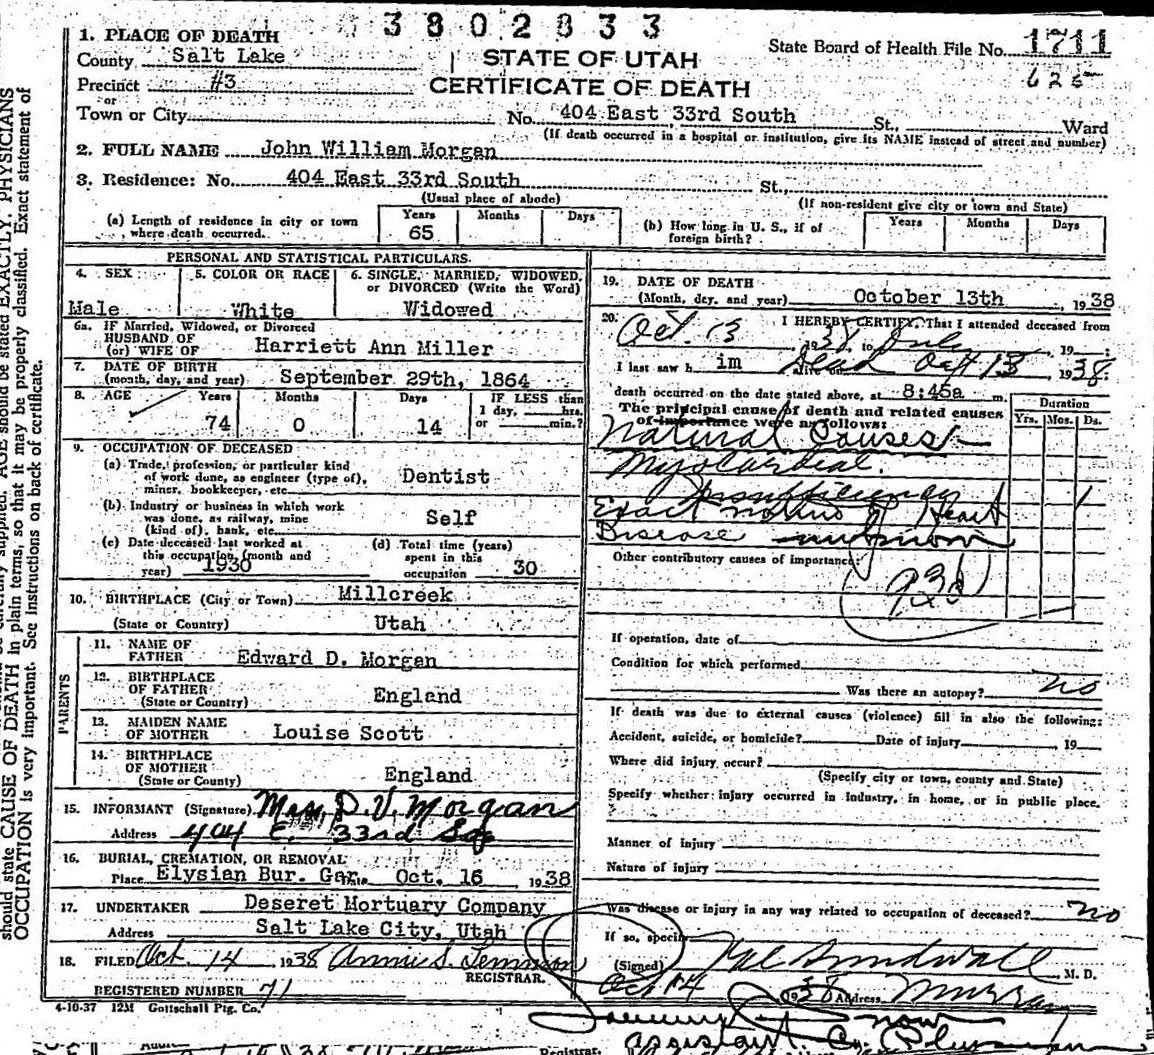 3802833
1. PLACE OF DEATH
County Salt Lake
Precinct #3
or
Town or City
STATE OF UTAH
CERTIFICATE OF DEATH
State Board of Health File No. 1711
625
No. 404 East 33rd South St., Ward
(If death occurred in a hospital or institution, give its NAME instead of street and number)
2. FULL NAME John William Morgan
3. Residence: No. 404 East 33rd South St.,
(Usual place of abode) (If non-resident give city or town and State)
(a) Length of residence in city or town where death occurred. Years 65 Months Days
(b) How long in U. S., if of foreign birth? Years Months Days
PERSONAL AND STATISTICAL PARTICULARS
4. SEX Male
5. COLOR OR RACE White
6. SINGLE, MARRIED, WIDOWED, or DIVORCED (Write the Word) Widowed
6a. IF Married, Widowed, or Divorced
HUSBAND OF
(or) WIFE OF Harriett Ann Miller
7. DATE OF BIRTH
(month, day, and year) September 29th, 1864
8. AGE Years 74 Months 0 Days 14 IF LESS than 1 day, hrs. or min.?
9. OCCUPATION OF DECEASED
(a) Trade, profession, or particular kind of work done, as engineer (type of), miner, bookkeeper, etc. Dentist
(b) Industry or business in which work was done, as railway, mine (kind of), bank, etc. Self
(c) Date deceased last worked at this occupation (month and year) 1930
(d) Total time (years) spent in this occupation 30
10. BIRTHPLACE (City or Town) Millcreek
(State or Country) Utah
PARENTS
11. NAME OF FATHER Edward D. Morgan
12. BIRTHPLACE OF FATHER (State or Country) England
13. MAIDEN NAME OF MOTHER Louise Scott
14. BIRTHPLACE OF MOTHER (State or County) England
15. INFORMANT (Signature) Mrs. D. V. Morgan
Address 404 E. 33rd So
16. BURIAL, CREMATION, OR REMOVAL
Place Elysian Bur. Gar. Oct. 16 1938
17. UNDERTAKER Deseret Mortuary Company
Address Salt Lake City, Utah
18. FILED Oct. 14 1938 Annie S.
REGISTRAR.
REGISTERED NUMBER 71
4-10-37 12M Gottschall Ptg. Co.
19. DATE OF DEATH
(Month, day, and year) October 13th, 1938
20. I HEREBY CERTIFY, That I attended deceased from
Oct. 13 1938 to only 19
I last saw him Dead Oct 13 1938:
death occurred on the date stated above, at 8:45a m.
The principal cause of death and related causes of importance were as follows:
Duration
Yrs. Mos. Ds.
Natural Causes
Myocardial
Insufficiency 1
Exact nature of Heart
Disease unknown
Other contributory causes of importance:
If operation, date of
Condition for which performed
Was there an autopsy? no
If death was due to external causes (violence) fill in also the following:
Accident, suicide, or homicide? Date of injury , 19
Where did injury occur?
(Specify city or town, county and State)
Specify whether injury occurred in industry, in home, or in public place.
Manner of injury
Nature of injury
Was disease or injury in any way related to occupation of deceased? no
If so, specify
(Signed) Val Sundwall, M. D.
Oct 14 1938 Address Murray
should state CAUSE OF DEATH in plain terms, so that it may be properly classified. Exact statement of
OCCUPATION is very important. See instructions on back of certificate.